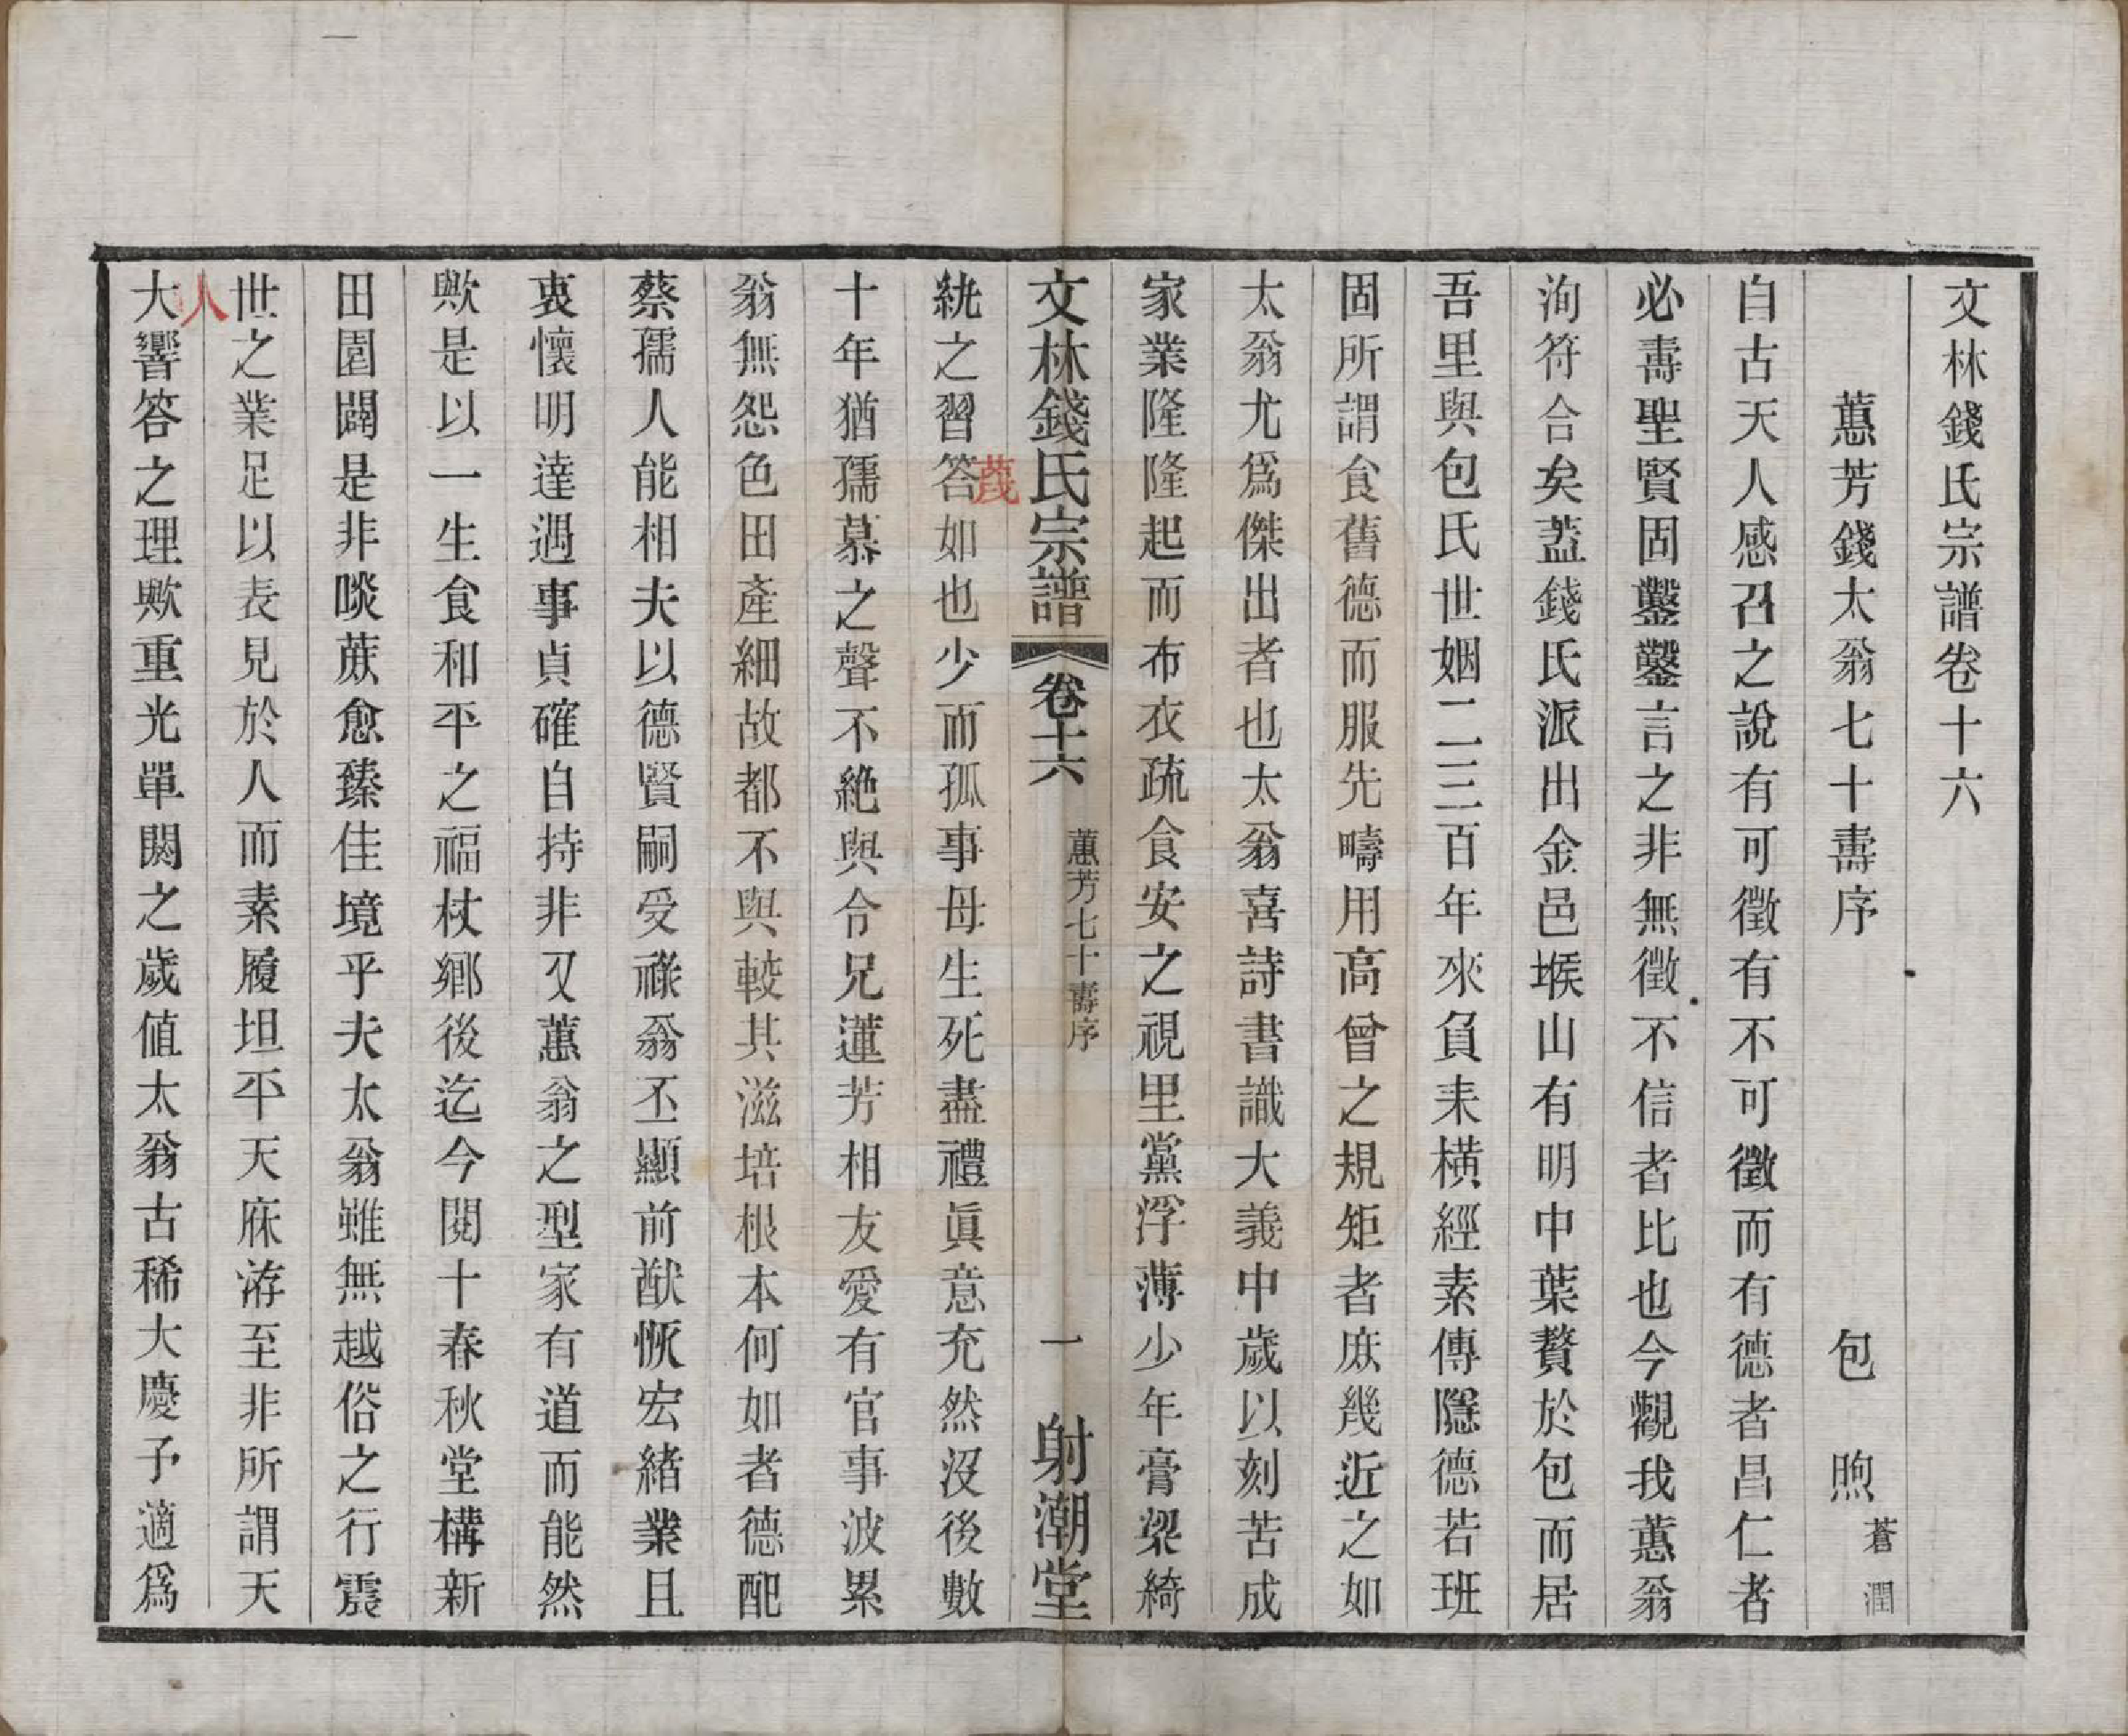 文林錢氏宗譜卷十六
蕙芳錢太翁七十壽序　包　煦 蒼潤
自古天人感召之說有可徵有不可徵而有德者昌仁者
必壽聖賢固鑿鑿言之非無徵不信者比也今觀我蕙翁
洵符合矣蓋錢氏派出金邑堠山有明中葉贅於包而居
吾里與包氏世姻二三百年來負耒橫經素傳隱德若班
固所謂食舊德而服先疇用高曾之規矩者庶幾近之如
太翁尤爲傑出者也太翁喜詩書識大義中歲以刻苦成
家業隆隆起而布衣疏食安之視里黨浮薄少年膏粱綺
文林錢氏宗譜　卷十六　蕙芳七十壽序　一　射潮堂
紈之習答如也少而孤事母生死盡禮眞意充然沒後數
蔑
十年猶孺慕之聲不絶與令兄蓮芳相友愛有官事波累
翁無怨色田產細故都不與較其滋培根本何如者德配
蔡孺人能相夫以德賢嗣受祿翁丕顯前猷恢宏緒業且
衷懷明達遇事貞確自持非又蕙翁之型家有道而能然
歟是以一生食和平之福杖鄉後迄今閱十春秋堂構新
田園闢是非啖蔗愈臻佳境乎夫太翁雖無越俗之行震
世之業足以表見於人而素履坦平天庥洊至非所謂天
人
大響答之理歟重光單閼之歲値太翁古稀大慶予適爲